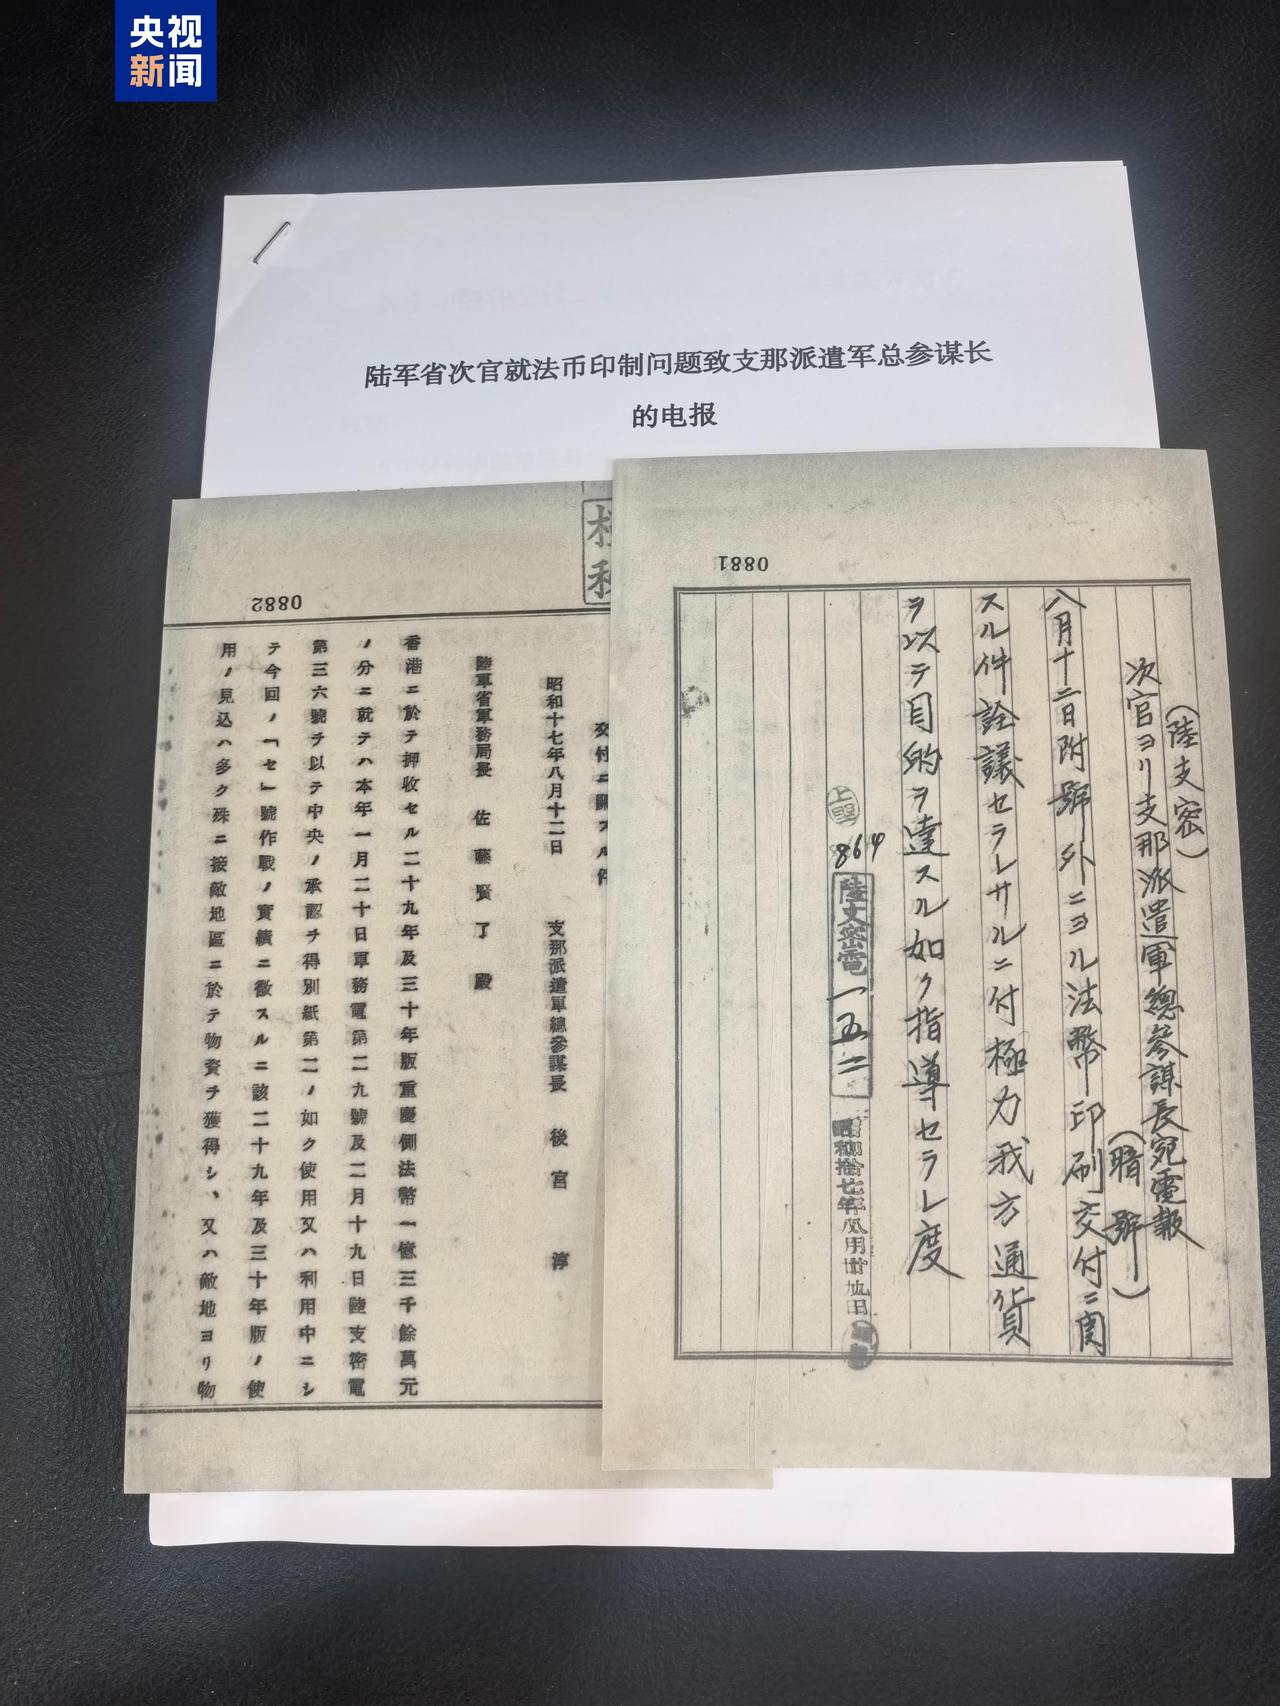 央视
新闻
陆军省次官就法币印制问题致支那派遣军总参谋长
的电报
0881
(陸支密)
次官ヨリ支那派遣軍總參謀長宛電報
(暗號)
八月十二日附號外ニヨル法幣印刷交付ニ関
スル件詮議セラレサルニ付極力我方通貨
ヲ以テ目的ヲ達スル如ク指導セラレ度
864
陸支密電一五二
昭和拾七年八月廿九日
0882
交付ニ關スル件
昭和十七年八月十二日 支那派遣軍總參謀長 後宮 淳
陸軍省軍務局長 佐藤賢了殿
香港ニ於テ押收セル二十九年及三十年版重慶側法幣一億三千餘萬元
ノ分ニ就テハ本年一月二十日軍務電第二九號及二月十九日陸支密電
第三六號ヲ以テ中央ノ承認ヲ得別紙第二ノ如ク使用又ハ利用中ニシ
テ今回ノ「セ」號作戰ノ實績ニ徵スルニ該二十九年及三十年版ノ使
用ノ見込ハ多ク殊ニ接敵地區ニ於テ物資ヲ獲得シ、又ハ敵地ヨリ物